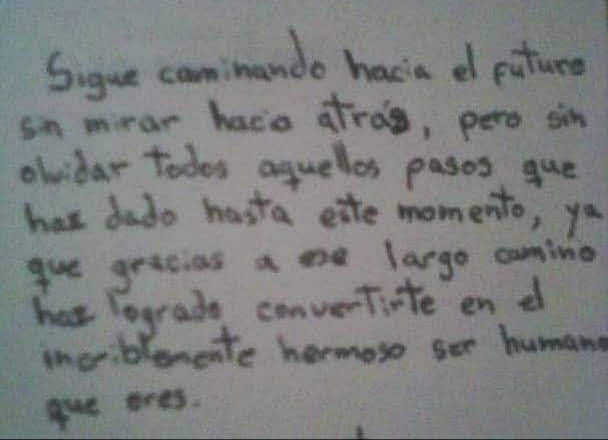 Sigue caminando hacia el futuro
sin mirar hacia atrás, pero sin
olvidar todos aquellos pasos que
has dado hasta este momento, ya
que gracias a ese largo camino
has logrado convertirte en el
increiblemente hermoso ser humano
que eres.